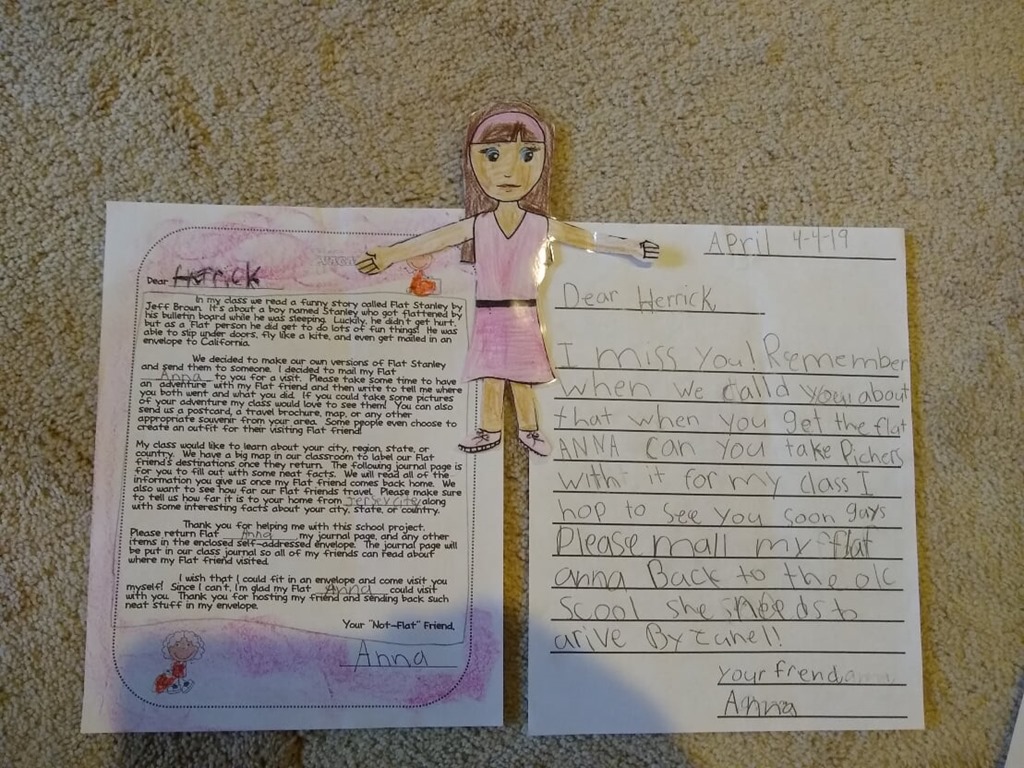 Dear Herrick
In my class we read a funny story called Flat Stanley by
Jeff Brown. It's about a boy named Stanley who got flattened by
his bulletin board while he was sleeping. Luckily, he didn't get hurt,
but as a Flat person he did get to do lots of fun things! He was
able to slip under doors, fly like a kite, and even get mailed in an
envelope to California.
We decided to make our own versions of Flat Stanley
and send them to someone. I decided to mail my Flat
Anna to you for a visit. Please take some time to have
an adventure with my Flat friend and then write to tell me where
you both went and what you did. If you could take some pictures
of your adventure my class would love to see them! You can also
send us a postcard, a travel brochure, map, or any other
appropriate souvenir from your area. Some people even choose to
create an outfit for their visiting Flat friend!
My class would like to learn about your city, region, state, or
country. We have a big map in our classroom to label our Flat
friend's destinations once they return. The following journal page is
for you to fill out with some neat facts. We will read all of the
information you give us once my Flat friend comes back home. We
also want to see how far our Flat friends travel. Please make sure
to tell us how far it is to your home from along
with some interesting facts about your city, state, or country.
Thank you for helping me with this school project.
Please return Flat Anna, my journal page, and any other
items in the enclosed self-addressed envelope. The journal page will
be put in our class journal so all of my friends can read about
where my Flat friend visited.
I wish that I could fit in an envelope and come visit you
myself! Since I can't, I'm glad my Flat Anna could visit
with you. Thank you for hosting my friend and sending back such
neat stuff in my envelope.
Your "Not-Flat" Friend,
Anna
April 4-4-19
Dear Herrick
I miss you! Remember
when we calld you about
that when you get the flat
ANNA can you take Pichers
with it for my class I
hop to see you soon guys
Please mall my flat
anna Back to the olc
scool she needs to
arive By
your frend
Anna